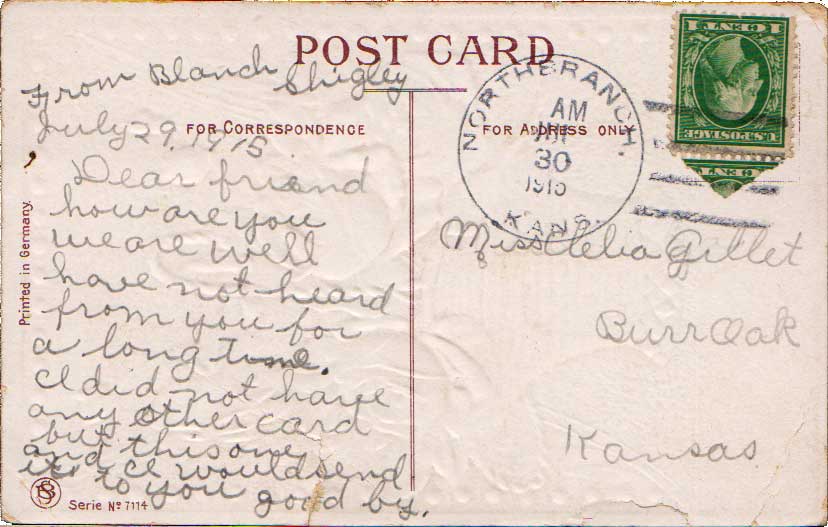 POST CARD
From Blanch Shigley
July 29, 1915
FOR CORRESPONDENCE
Dear friend
how are you
we are well
have not heard
from you for
a long time.
I did not have
any other card
but this one
and I would send
it to you good by.
Printed in Germany.
Serie No 7114
FOR ADDRESS ONLY
NORTHBRANCH.
AM
30
1915
KANS.
1 CENT 1
U.S. POSTAGE
Miss Clelia Gillet
Burr Oak
Kansas